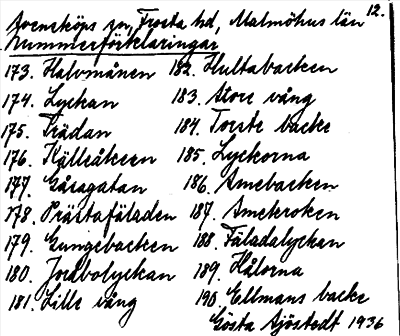 12.
Svensköps sn, Frosta hd, Malmöhus län
Nummerförklaringar
173. Halvmånen 182. Hultabacken
174. Lyckan 183. Store vång
175. Trädan 184. Torste backe
176. Källeåkern 185. Lyckorna
177. Gåsagatan 186. Amebacken
178. Prästafäladen 187. Amekroken
179. Gungebacken 188. Fäladalyckan
180. Jordbolyckan 189. Hålorna
181. Lille vång 190. Ellmans backe
Gösta Sjöstedt 1936